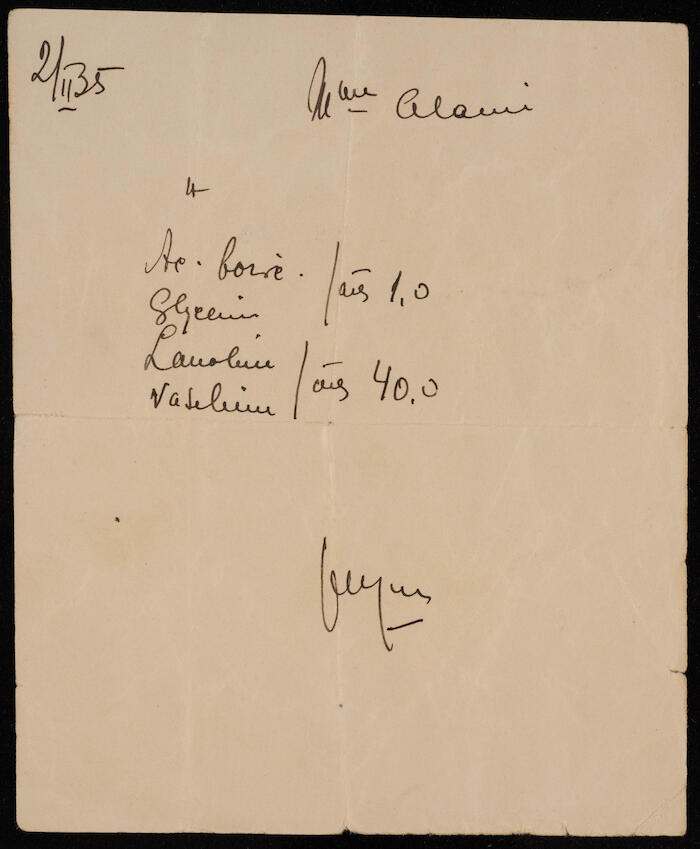 2/II 35
Mme Alami
Ac. boric. / āā 1,0
Glycerin
Lanolin / āā 40,0
Vaselin